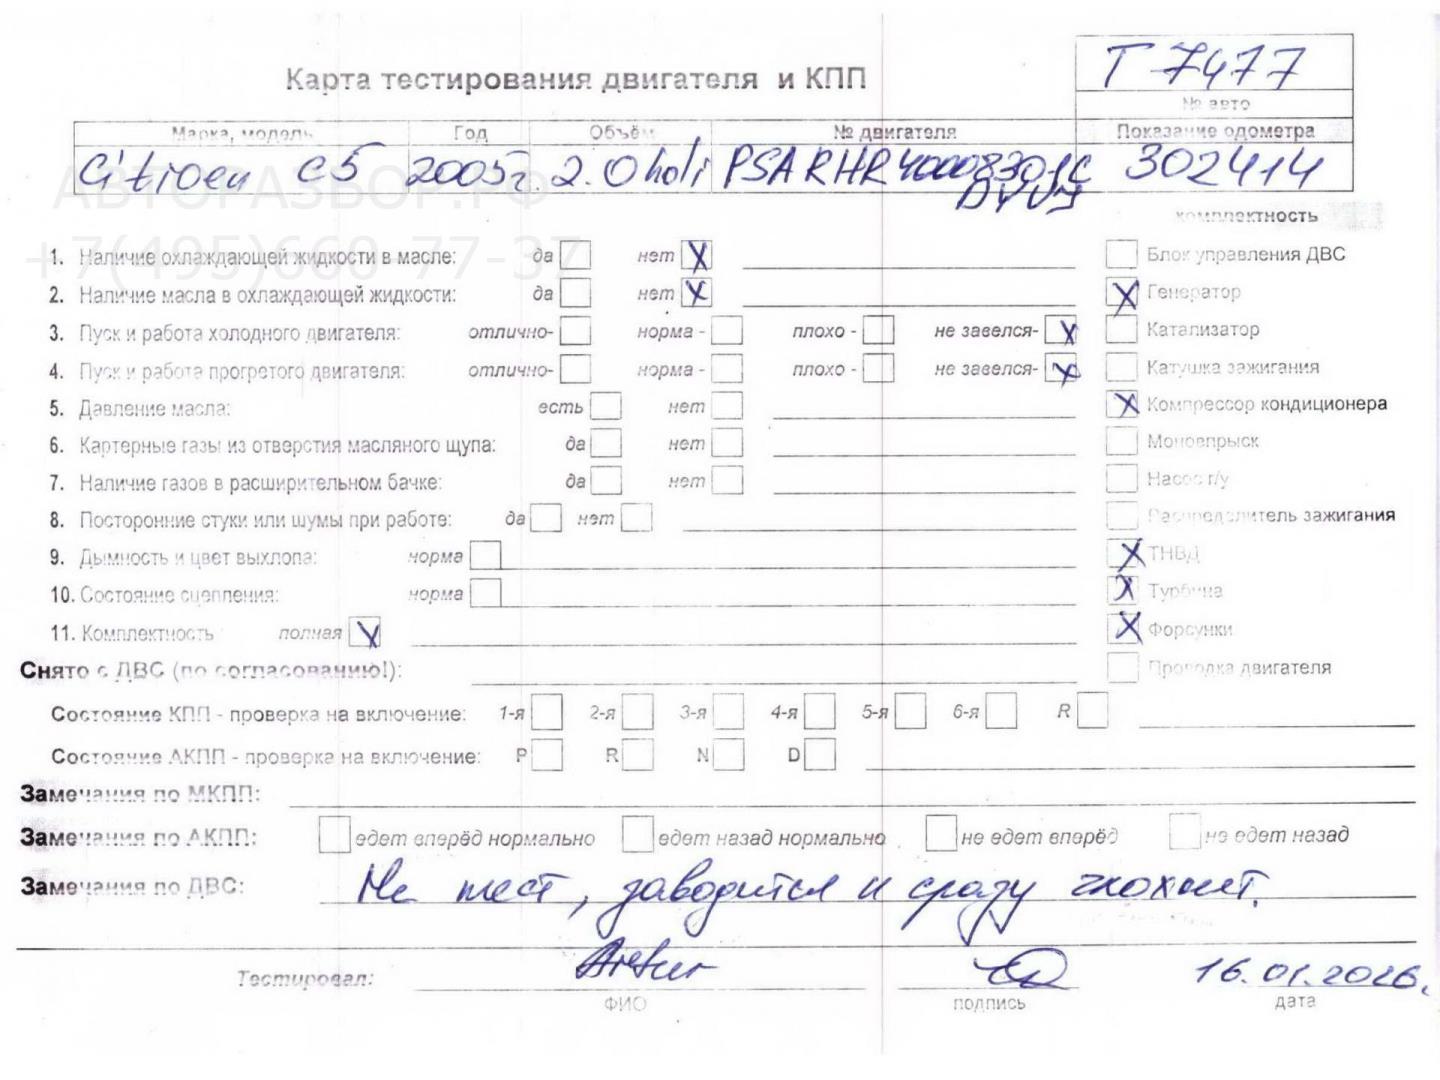 Т 7477
Карта тестирования двигателя и КПП
№ авто
Марка, модель Год Объём № двигателя Показание одометра
Citroen C5 2005г. 2.0 hdi PSA RHR 4000 302414
АВТОРАЗБОР.РФ
+7(495)660-77-37
комплектность
1. Наличие охлаждающей жидкости в масле: да нет X Блок управления ДВС
2. Наличие масла в охлаждающей жидкости: да нет X X Генератор
3. Пуск и работа холодного двигателя: отлично- норма - плохо - не завелся- X Катализатор
4. Пуск и работа прогретого двигателя: отлично- норма - плохо - не завелся- X Катушка зажигания
5. Давление масла: есть нет X Компрессор кондиционера
6. Картерные газы из отверстия масляного щупа: да нет Моновпрыск
7. Наличие газов в расширительном бачке: да нет Насос г/у
8. Посторонние стуки или шумы при работе: да нет Распределитель зажигания
9. Дымность и цвет выхлопа: норма X ТНВД
10. Состояние сцепления: норма X Турбина
11. Комплектность полная X X Форсунки
Снято с ДВС (по согласованию!): Проводка двигателя
Состояние КПП - проверка на включение: 1-я 2-я 3-я 4-я 5-я 6-я R
Состояние АКПП - проверка на включение: P R N D
Замечания по МКПП:
Замечания по АКПП: едет вперёд нормально едет назад нормально не едет вперёд не едет назад
Замечания по ДВС: Не тест, заводится и сразу глохнет.
Тестировал: Artur 16.01.2026.
ФИО подпись дата